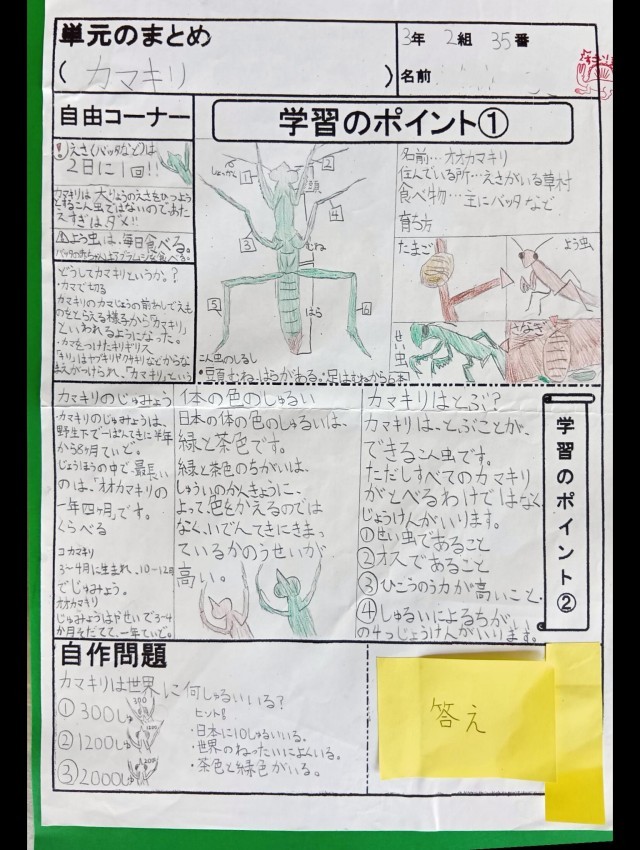 単元のまとめ
(カマキリ)
3年 2組 35番
名前
自由コーナー
えさ(バッタなど)は
2日に1回!!
カマキリは大りょうのえさをひつよう
とするこん虫ではないのであた
えすぎはダメ!!
よう虫は、毎日食べる。
どうしてカマキリというか。?
・カマで切る
カマキリのカマじょうの前あしでえも
のをとらえる様子から「カマキリ」
といわれるようになった。
・カマをつけたキリギリス
まえがつけられ、「カマキリ」という
学習のポイント①
しょっかく
1
2
頭
3
4
むね
5
はら
6
こん虫のしるし
・頭、むね、はらがある。足はむねから6本
名前…オオカマキリ
住んでいる所…えさがいる草村
食べ物…主にバッタなど
育ち方
たまご
よう虫
せい虫
さなぎ
カマキリのじゅみょう
・カマキリのじゅみょうは、
野生下で一ぱんてきに半年
から8ヶ月ていど。
じょうほうの中で、最長い
のは、「オオカマキリの
一年四ヶ月」です。
くらべる
コカマキリ
3~4月に生まれ、10~12月
でじゅみょう。
オオカマキリ
じゅみょうはやせいで3~4
か月そだてて、一年ていど。
体の色のしゅるい
日本の体の色のしゅるいは、
緑と茶色です。
緑と茶色のちがいは、
しゅういのかんきょうに、
よって色をかえるのでは
なく、いでんてきにきまっ
ているかのうせいが
高い。
カマキリはとぶ?
カマキリは、とぶことが、
できるこん虫です。
ただしすべてのカマキリ
がとべるわけではなく、
じょうけんがいります。
①せい虫であること
②オスであること
③ひこうのう力が高いこと。
④しゅるいによるちがい
の4つじょうけんがいります。
学習のポイント②
自作問題
カマキリは世界に何しゅるいいる?
①300しゅ
②1200しゅ
③2000しゅ
ヒント!
・日本に10しゅるいいる。
・世界のねったいによくいる。
・茶色と緑色がいる。
答え